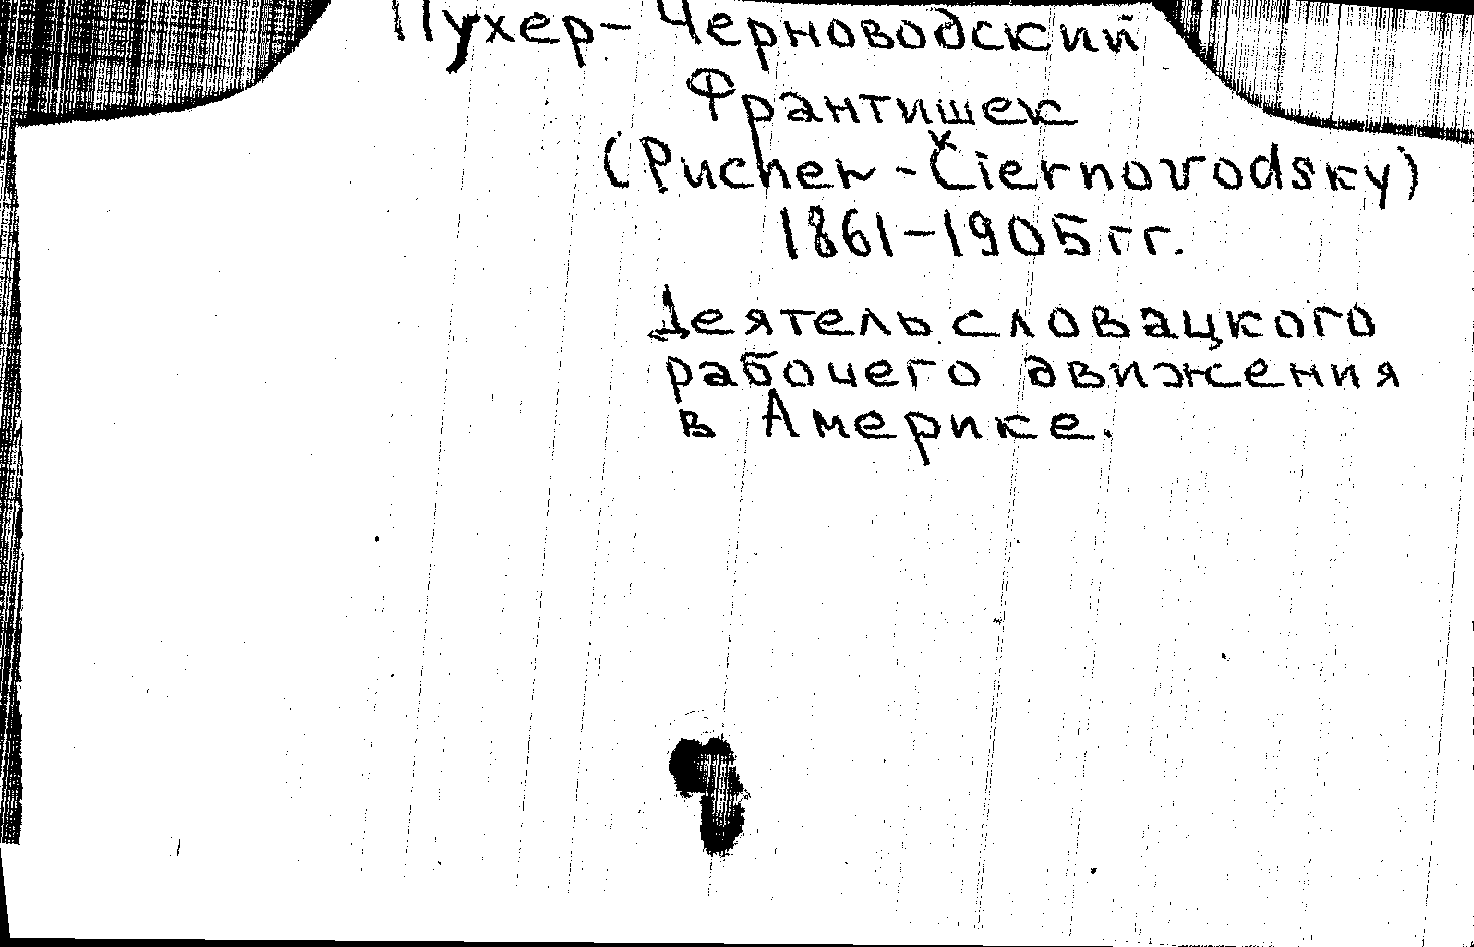 Пухер-Черноводский
Франтишек
(Pucher-Čiernovodsky)
1861-1905 гг.
Деятель словацкого
рабочего движения
в Америке.